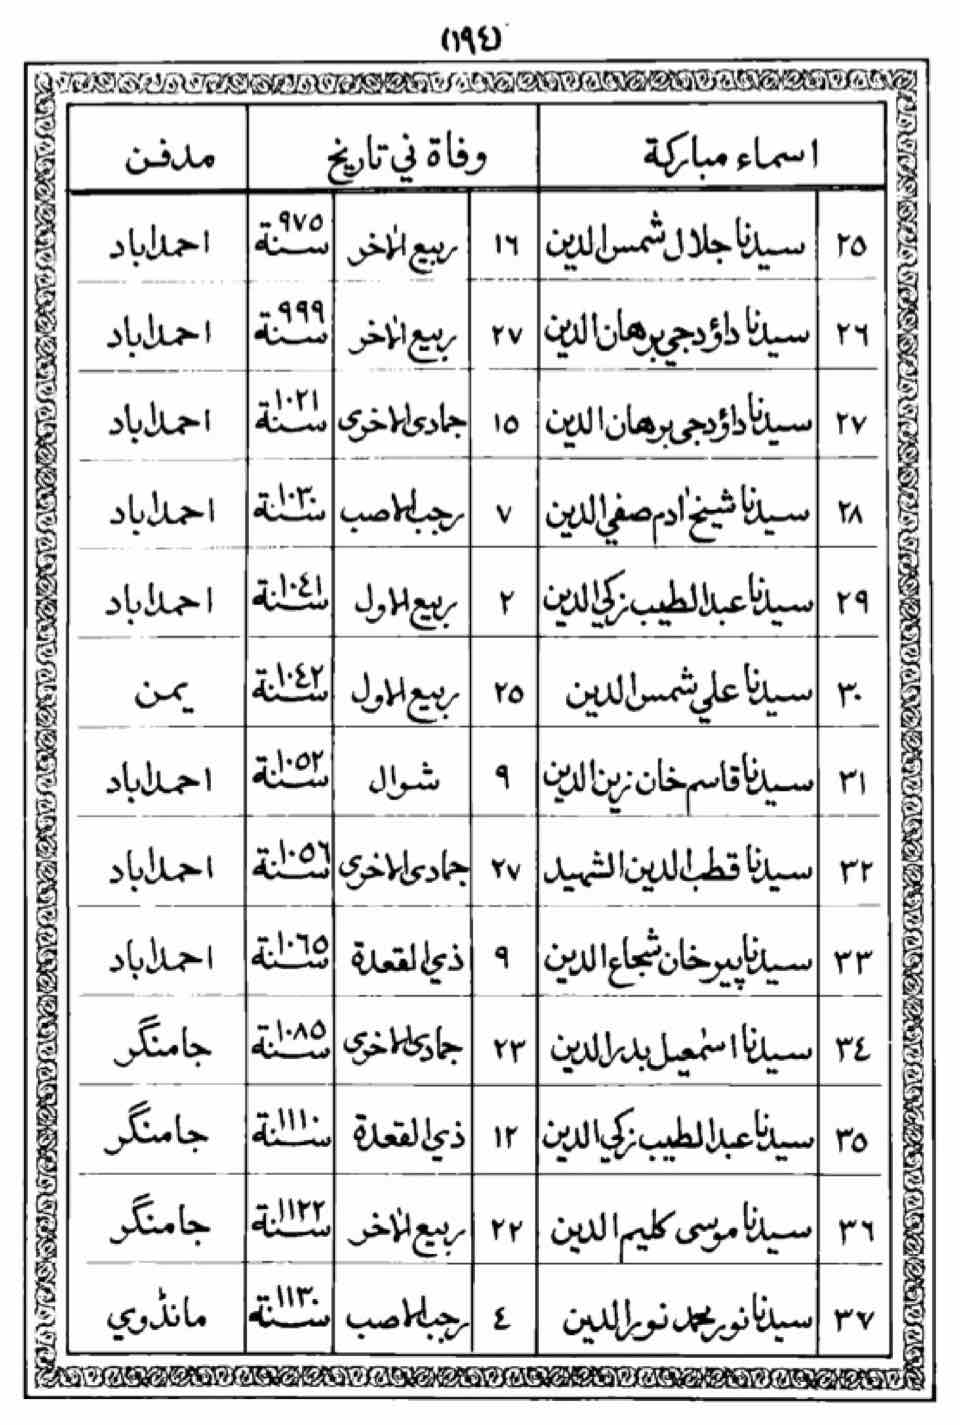 (١٩٤)
اسماء مباركة وفاة في تاريخ مدفن
٢٥ سيدنا جلال شمس الدين ١٦ ربيع الاٰخر سنة ٩٧٥ احمداباد
٢٦ سيدنا داؤدجي برهان الدين ٢٧ ربيع الاٰخر سنة ٩٩٩ احمداباد
٢٧ سيدنا داؤدجي برهان الدين ١٥ جمادى الاخرى سنة ١٠٢١ احمداباد
٢٨ سيدنا شيخ اٰدم صفي الدين ٧ رجب الاصب سنة ١٠٣٠ احمداباد
٢٩ سيدنا عبد الطيب زكي الدين ٢ ربيع الاول سنة ١٠٤١ احمداباد
٣٠ سيدنا علي شمس الدين ٢٥ ربيع الاول سنة ١٠٤٢ يمن
٣١ سيدنا قاسم خان زين الدين ٩ شوال سنة ١٠٥٢ احمداباد
٣٢ سيدنا قطب الدين الشهيد ٢٧ جمادى الاخرى سنة ١٠٥٦ احمداباد
٣٣ سيدنا پير خان شجاع الدين ٩ ذي القعدة سنة ١٠٦٥ احمداباد
٣٤ سيدنا اسمٰعيل بدر الدين ٢٣ جمادى الاخرى سنة ١٠٨٥ جامنگر
٣٥ سيدنا عبد الطيب زكي الدين ١٢ ذي القعدة سنة ١١١٠ جامنگر
٣٦ سيدنا موسى كليم الدين ٢٢ ربيع الاٰخر سنة ١١٢٢ جامنگر
٣٧ سيدنا نور محمد نور الدين ٤ رجب الاصب سنة ١١٣٠ مانڈوي